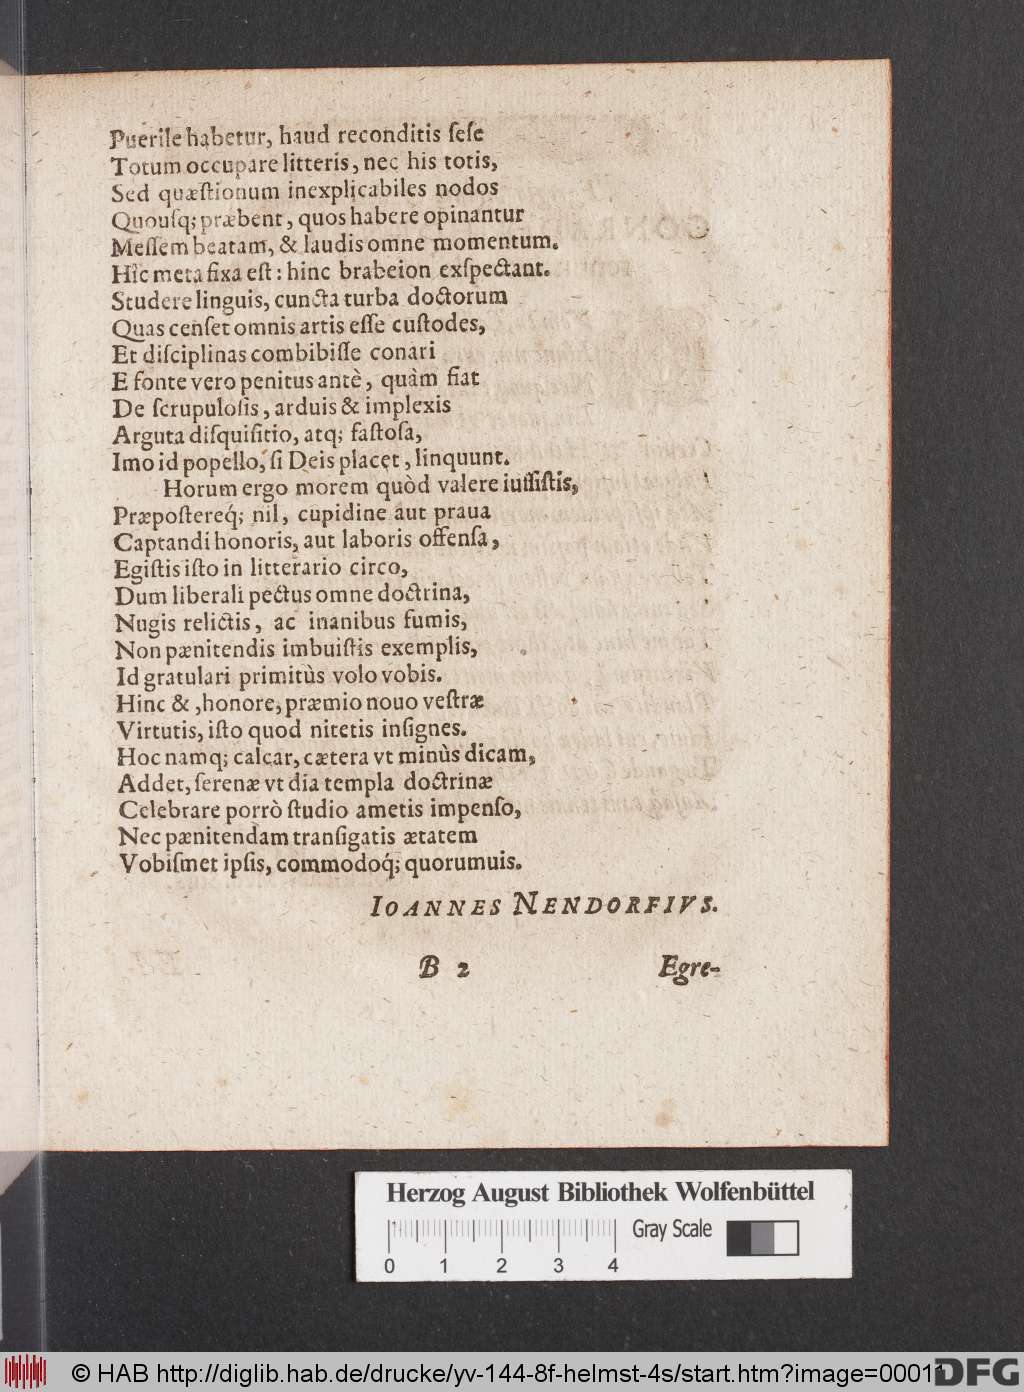 Puerile habetur, haud reconditis ſeſe
Totum occupare litteris, nec his totis,
Sed quæſtionum inexplicabiles nodos
Quouſq; præbent, quos habere opinantur
Meſſem beatam, & laudis omne momentum.
Hîc meta fixa eſt: hinc brabeion exſpectant.
Studere linguis, cuncta turba doctorum
Quas cenſet omnis artis eſſe cuſtodes,
Et diſciplinas combibiſſe conari
E fonte vero penitus antè, quàm fiat
De ſcrupuloſis, arduis & implexis
Arguta diſquiſitio, atq; faſtoſa,
Imo id popello, ſi Deis placet, linquunt.
Horum ergo morem quòd valere iuſſiſtis,
Præpoſtereq́; nil, cupidine aut praua
Captandi honoris, aut laboris offenſa,
Egiſtis iſto in litterario circo,
Dum liberali pectus omne doctrina,
Nugis relictis, ac inanibus fumis,
Non pænitendis imbuiſtis exemplis,
Id gratulari primitùs volo vobis.
Hinc &, honore, præmio nouo veſtræ
Virtutis, iſto quod nitetis inſignes.
Hoc namq; calcar, cætera vt minùs dicam,
Addet, ſerenæ vt dia templa doctrinæ
Celebrare porrò ſtudio ametis impenſo,
Nec pænitendam tranſigatis ætatem
Vobiſmet ipſis, commodoq́; quorumuis.
IOANNES NENDORFIVS.
B 2 Egre-
Herzog August Bibliothek Wolfenbüttel
Gray Scale
0 1 2 3 4
© HAB http://diglib.hab.de/drucke/yv-144-8f-helmst-4s/start.htm?image=00011
DFG